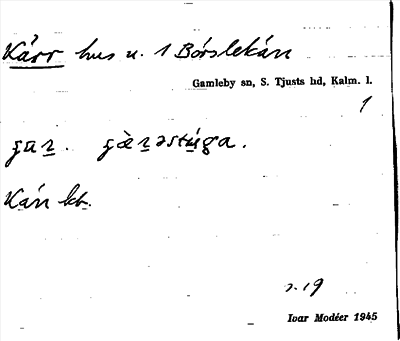 Kärr hus u. 1 Börslekån
Gamleby sn, S. Tjusts hd, Kalm. l.
1
Kärr kb.
s. 19
Ivar Modéer 1945